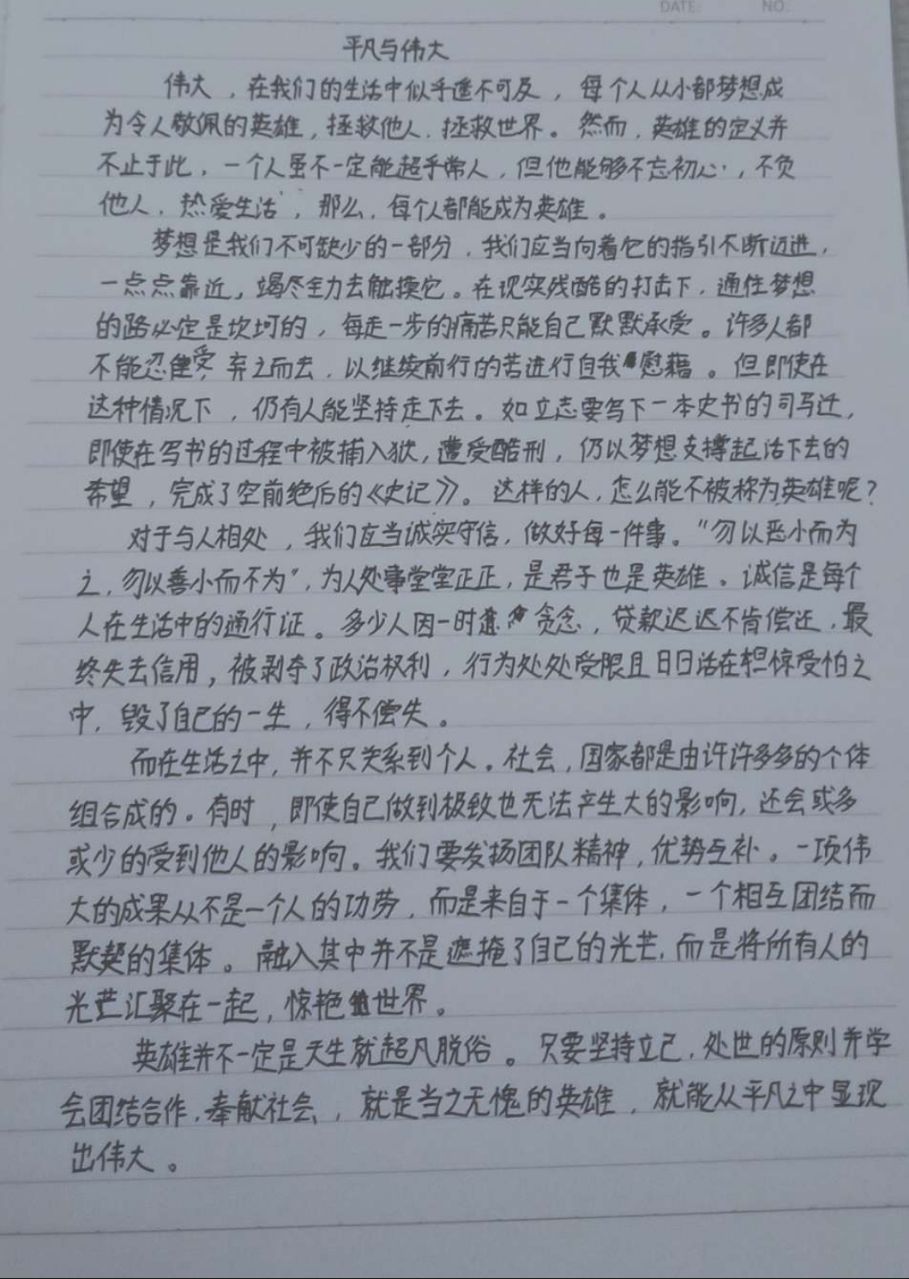 DATE: NO.
平凡与伟大
伟大，在我们的生活中似乎遥不可及，每个人从小都梦想成
为令人敬佩的英雄，拯救他人，拯救世界。然而，英雄的定义并
不止于此，一个人虽不一定能超乎常人，但他能够不忘初心，不负
他人，热爱生活，那么，每个人都能成为英雄。
梦想是我们不可缺少的一部分，我们应当向着它的指引不断迈进，
一点点靠近，竭尽全力去触摸它。在现实残酷的打击下，通往梦想
的路必定是坎坷的，每走一步的痛苦只能自己默默承受。许多人都
不能忍受，弃之而去，以继续前行的苦进行自我慰藉。但即使在
这种情况下，仍有人能坚持走下去。如立志要写下一本史书的司马迁，
即使在写书的过程中被捕入狱，遭受酷刑，仍以梦想支撑起活下去的
希望，完成了空前绝后的《史记》。这样的人，怎么能不被称为英雄呢？
对于与人相处，我们应当诚实守信，做好每一件事。“勿以恶小而为
之，勿以善小而不为”，为人处事堂堂正正，是君子也是英雄。诚信是每个
人在生活中的通行证。多少人因一时贪念，贷款迟迟不肯偿还，最
终失去信用，被剥夺了政治权利，行为处处受限且日日活在担惊受怕之
中，毁了自己的一生，得不偿失。
而在生活之中，并不只关系到个人。社会，国家都是由许许多多的个体
组合成的。有时，即使自己做到极致也无法产生大的影响，还会或多
或少的受到他人的影响。我们要发扬团队精神，优势互补。一项伟
大的成果从不是一个人的功劳，而是来自于一个集体，一个相互团结而
默契的集体。融入其中并不是遮掩了自己的光芒，而是将所有人的
光芒汇聚在一起，惊艳世界。
英雄并不一定是天生就超凡脱俗。只要坚持立己，处世的原则并学
会团结合作，奉献社会，就是当之无愧的英雄，就能从平凡之中显现
出伟大。